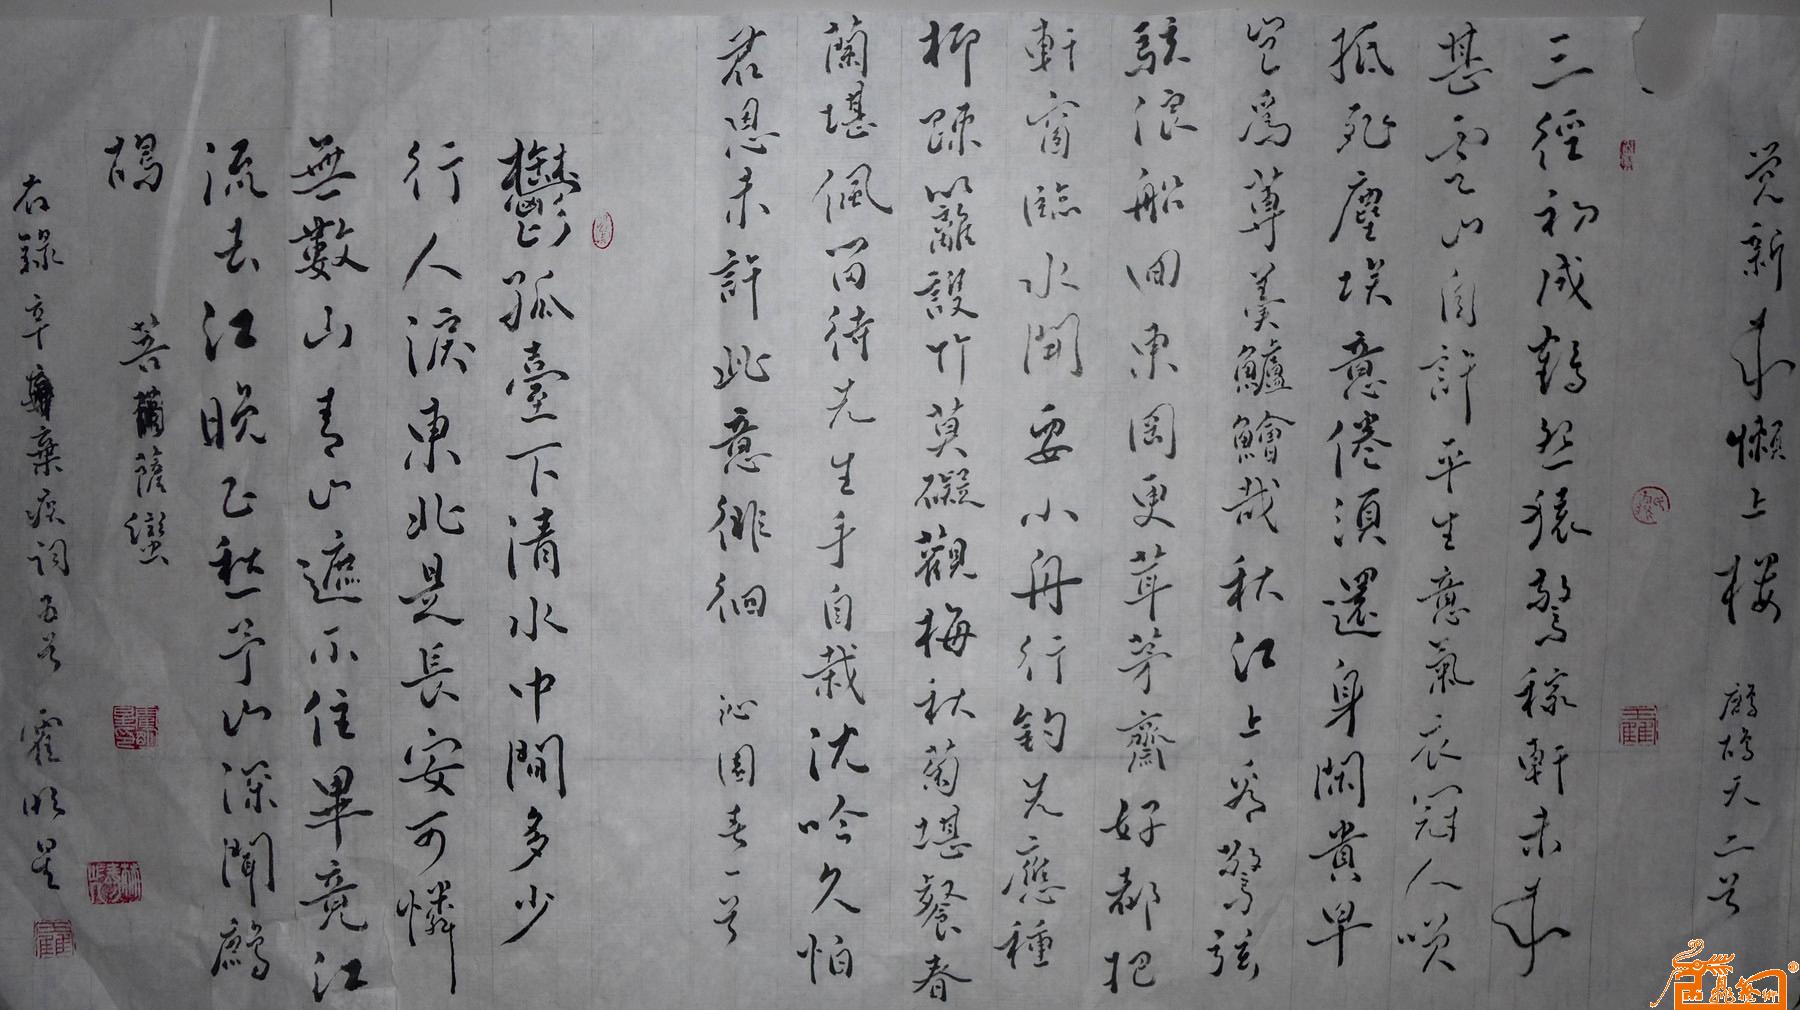 觉新来懒上楼 鹧鸪天二首
三径初成鹤怨猿惊稼轩未来
甚云山自许平生意氣衣冠人笑
抵死塵埃意倦須還身閑貴早
豈爲蓴羹鱸鱠哉秋江上看驚弦
駭浪船回東岡更茸茅齋好都把
軒窗臨水開要小舟行釣先應種
柳疎籬護竹莫礙觀梅秋菊堪餐春
蘭堪佩留待先生手自栽沈吟久怕
君恩未許此意徘徊 沁園春一首
鬱孤臺下清水中間多少
行人淚東北是長安可憐
無數山青山遮不住畢竟江
流去江晚正愁予山深聞鷓
鴣 菩薩蠻
右録辛棄疾词五首 霍明星